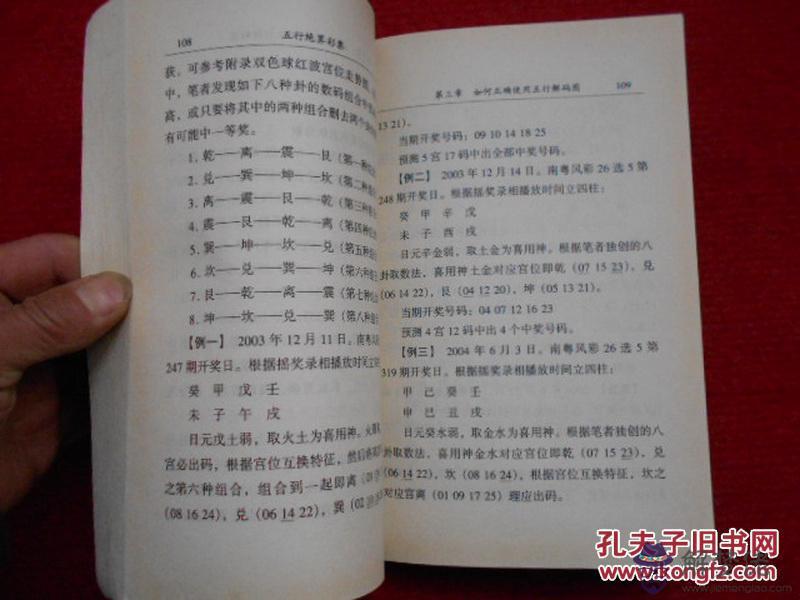 108 五行绝算彩票
获，可参考附录双色球红波宫位走势图
中，笔者发现如下八种卦的数码组合中
高，或只要将其中的两种组合删去两个
有可能中一等奖。
1. 乾——离——震——艮（第一种
2. 兑——巽——坤——坎（第二种
3. 离——震——艮——乾（第三种
4. 震——艮——乾——离（第四种
5. 巽——坤——坎——兑（第五种
6. 坎——兑——巽——坤（第六种
7. 艮——乾——离——震（第七种
8. 坤——坎——兑——巽（第八种
【例一】 2003 年 12 月 11 日。南粤风
247 期开奖日。根据摇奖录相播放时间立
癸 甲 戊 壬
未 子 午 戌
日元戊土弱，取火土为喜用神。火
宫必出码，根据宫位互换特征，然后将
之第六种组合，组合到一起即离（01 09
(08 16 24)，兑（06 14 22)，巽（02
第三章 如何正确使用五行解码图 109
13 21)。
当期开奖号码：09 10 14 18 25
预测 5 宫 17 码中出全部中奖号码。
【例二】 2003 年 12 月 14 日。南粤风彩 26 选 5 第
248 期开奖日。根据摇奖录相播放时间立四柱：
癸 甲 辛 戊
未 子 酉 戌
日元辛金弱，取土金为喜用神。根据笔者独创的八
卦取数法，喜用神土金对应宫位即乾（07 15 23)，兑
(06 14 22)，艮（04 12 20)，坤（05 13 21)。
当期开奖号码：04 07 12 16 23
预测 4 宫 12 码中出 4 个中奖号码。
【例三】 2004 年 6 月 3 日。南粤风彩 26 选 5 第
319 期开奖日。根据摇奖录相播放时间立四柱：
甲 己 癸 壬
申 巳 丑 戌
日元癸水弱，取金水为喜用神。根据笔者独创的八
卦取数法，喜用神金水对应宫位即乾（07 15 23)，兑
(06 14 22)，坎（08 16 24)，根据宫位互换特征，坎之
对应宫离（01 09 17 25）理应出码。
孔夫子旧书网
www.kongfz.com
www.jiemengliao.com